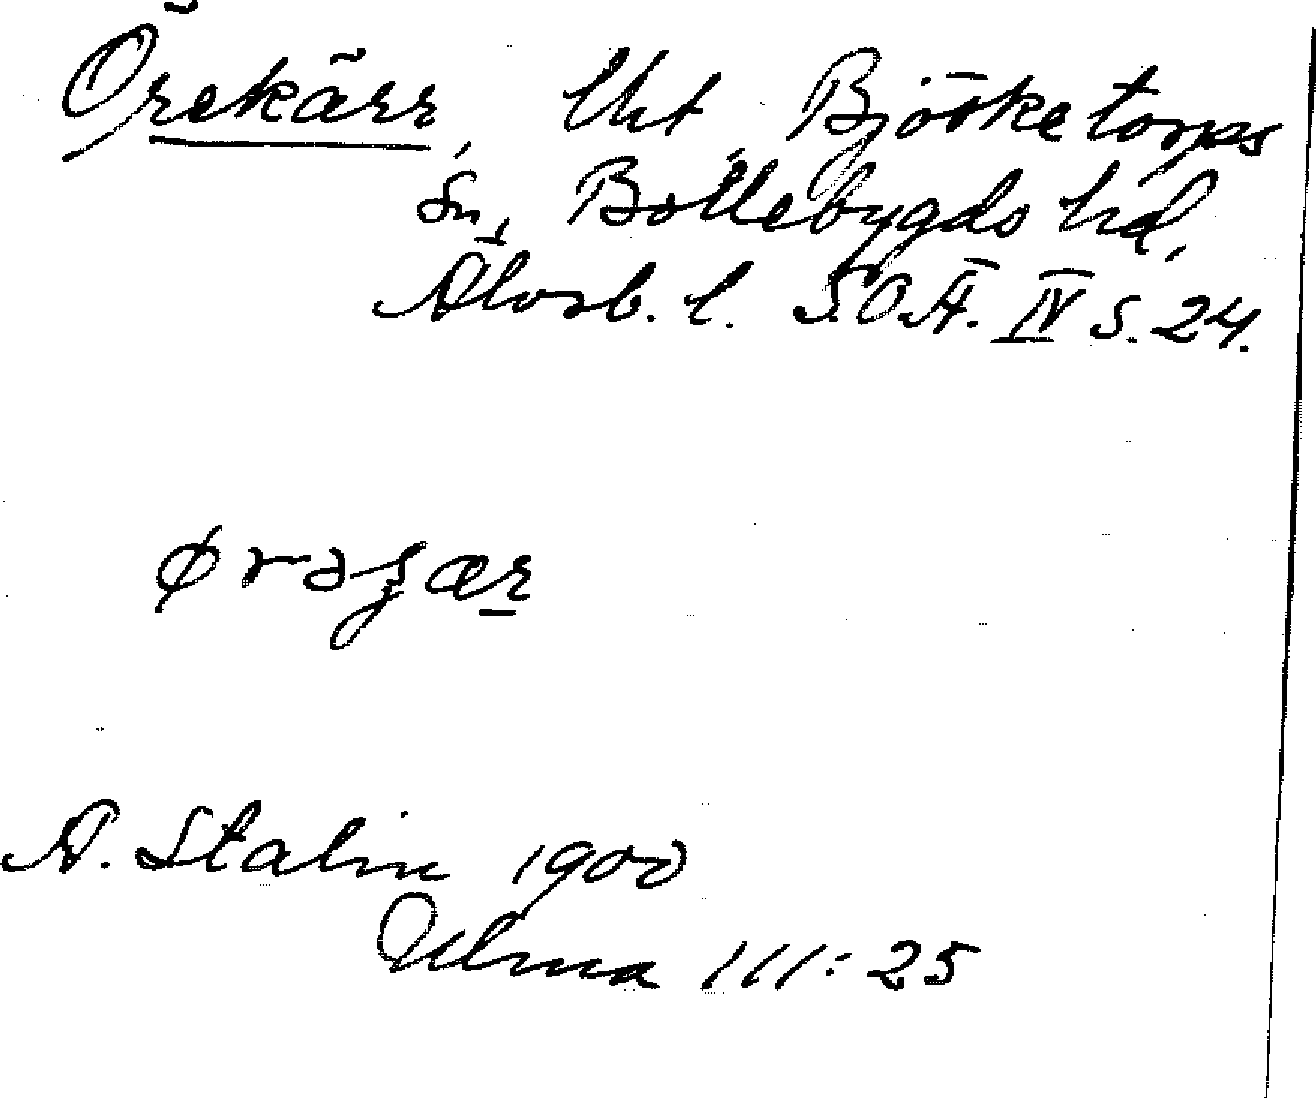 Örekärr, Uht, Björketorps
sn, Bollebygds hd,
Älvsb. l. S.O.Ä. IV s. 24.
A. Stalin 1900
Ulma 111:25